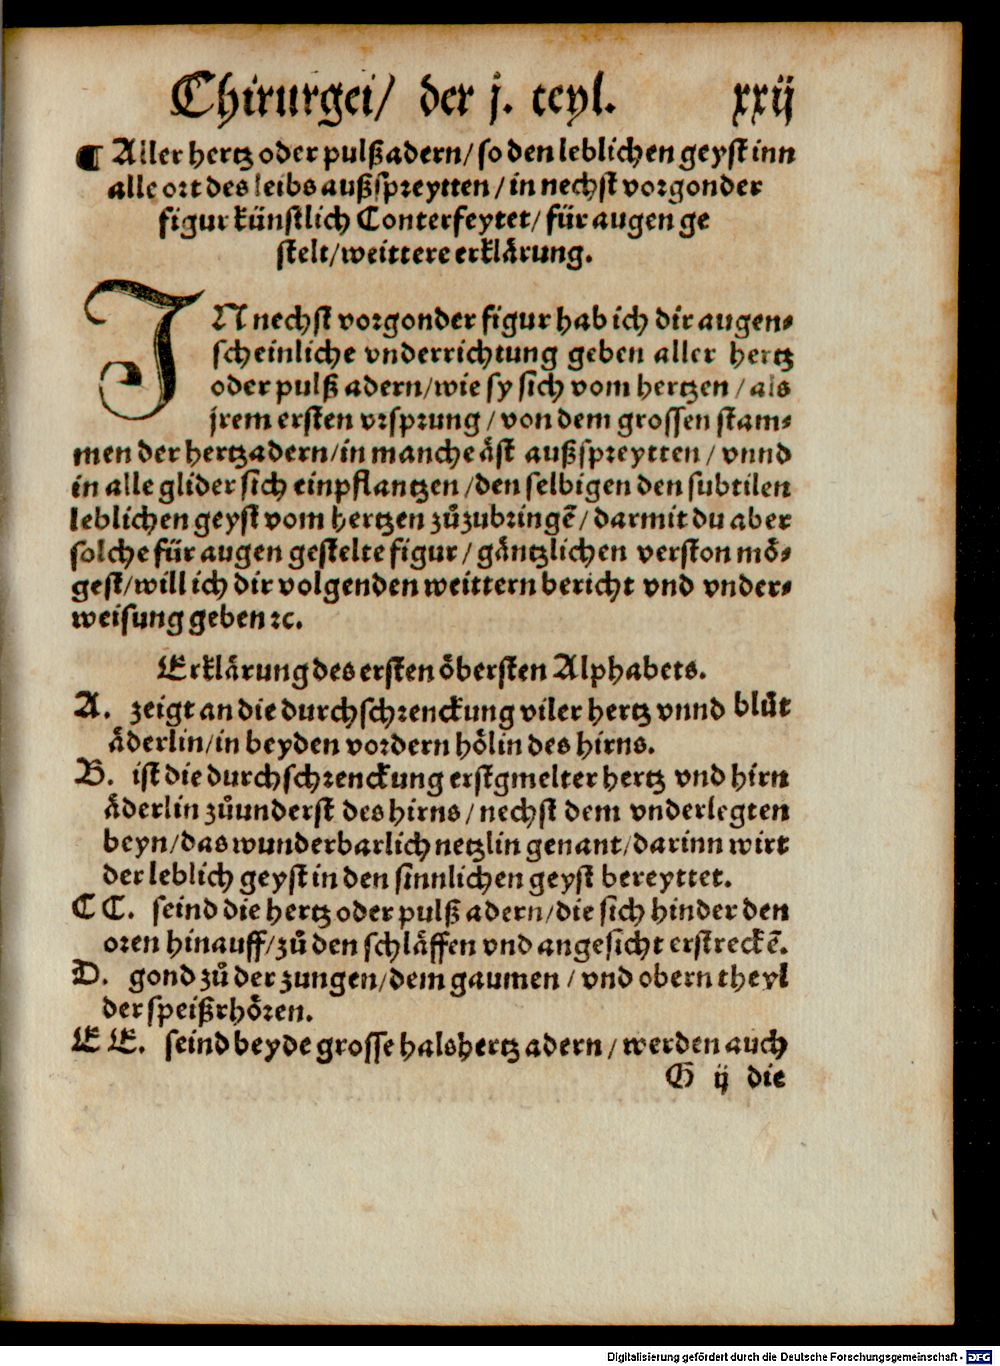 Chirurgei/ der j. teyl. xxij
¶ Aller hertz oder pulß adern/ so den leblichen geyst inn
alle ort des leibs außspreytten/ in nechst vorgonder
figur künstlich Conterfeytet/ für augen ge
stelt/ weittere erklårung.
IN nechst vorgonder figur hab ich dir augen⸗
scheinliche vnderrichtung geben aller hertz
oder pulß adern/ wie sy sich vom hertzen/ als
jrem ersten vrsprung/ von dem grossen stam⸗
men der hertzadern/ in manche åst außspreytten/ vnnd
in alle glider sich einpflantzen/ den selbigen den subtilen
leblichen geyst vom hertzen zůzubringẽ/ darmit du aber
solche für augen gestelte figur/ gåntzlichen verston mö⸗
gest/ will ich dir volgenden weittern bericht vnd vnder⸗
weisung geben ꝛc.
Erklårung des ersten öbersten Alphabets.
A. zeigt an die durchschrenckung viler hertz vnnd blůt
åderlin/ in beyden vordern hölin des hirns.
B. ist die durchschrenckung erstgmelter hertz vnd hirn
åderlin zůunderst des hirns/ nechst dem vnderlegten
beyn/ das wunderbarlich netzlin genant/ darinn wirt
der leblich geyst in den sinnlichen geyst bereyttet.
C C. seind die hertz oder pulß adern/ die sich hinder den
oren hinauff/ zů den schlåffen vnd angesicht erstreckẽ.
D. gond zů der zungen/ dem gaumen/ vnd obern theyl
der speißrhören.
E E. seind beyde grosse halshertz adern/ werden auch
G ij die
Digitalisierung gefördert durch die Deutsche Forschungsgemeinschaft - DFG